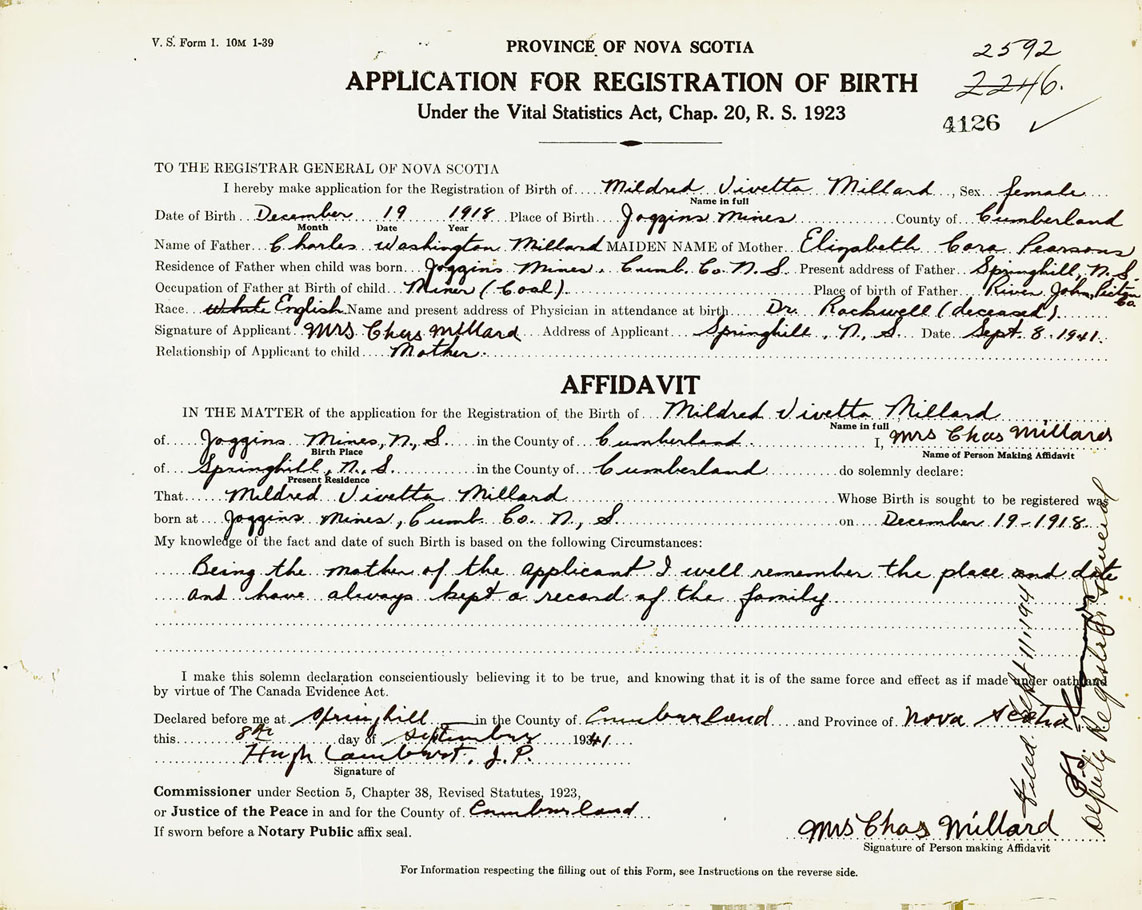 V. S. Form 1. 10M 1-39
PROVINCE OF NOVA SCOTIA
2592
APPLICATION FOR REGISTRATION OF BIRTH
2246.
Under the Vital Statistics Act, Chap. 20, R. S. 1923
4126 ✓
TO THE REGISTRAR GENERAL OF NOVA SCOTIA
I hereby make application for the Registration of Birth of Mildred Vivetta Millard, Sex female
Name in full
Date of Birth December 19 1918 Place of Birth Joggins Mines County of Cumberland
Month Date Year
Name of Father Charles Washington Millard MAIDEN NAME of Mother Elizabeth Cora Pearsons
Residence of Father when child was born Joggins Mines. Cumb. Co. N. S. Present address of Father Springhill, N. S.
Occupation of Father at Birth of child Miner (Coal) Place of birth of Father River John, Pictou Co
Race White English Name and present address of Physician in attendance at birth Dr. Rockwell (deceased)
Signature of Applicant Mrs Chas Millard Address of Applicant Springhill, N., S. Date Sept. 8, 1941.
Relationship of Applicant to child Mother.
AFFIDAVIT
IN THE MATTER of the application for the Registration of the Birth of Mildred Vivetta Millard
Name in full
of Joggins Mines, N., S. in the County of Cumberland I, Mrs Chas Millard
Birth Place Name of Person Making Affidavit
of Springhill, N. S. in the County of Cumberland do solemnly declare:
Present Residence
That Mildred Vivetta Millard Whose Birth is sought to be registered was
born at Joggins Mines, Cumb. Co. N., S. on December 19-1918.
My knowledge of the fact and date of such Birth is based on the following Circumstances:
Being the mother of the applicant I well remember the place and date
and have always kept a record of the family
I make this solemn declaration conscientiously believing it to be true, and knowing that it is of the same force and effect as if made under oath and
by virtue of The Canada Evidence Act.
Declared before me at Springhill in the County of Cumberland and Province of Nova Scotia
this 8th day of September 1941
Hugh Lambert, J. P.
Signature of
Commissioner under Section 5, Chapter 38, Revised Statutes, 1923,
or Justice of the Peace in and for the County of Cumberland
If sworn before a Notary Public affix seal.
Mrs Chas Millard
Signature of Person making Affidavit
For Information respecting the filling out of this Form, see Instructions on the reverse side.
Filed Sept 11, 1941
Deputy Registrar General